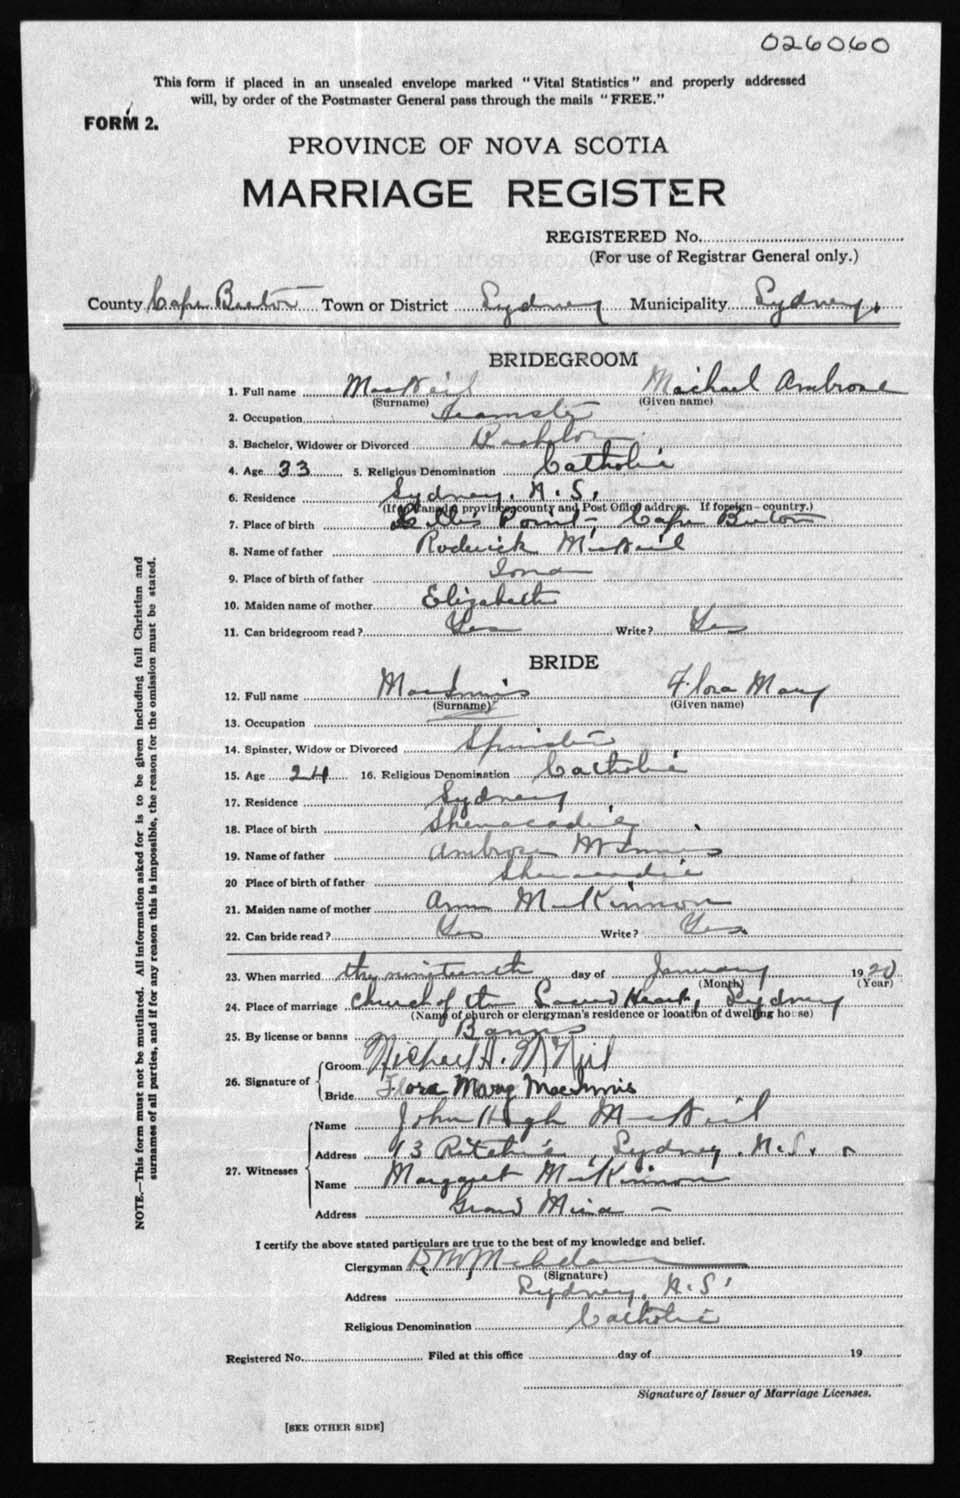 026060
This form if placed in an unsealed envelope marked "Vital Statistics" and properly addressed
will, by order of the Postmaster General pass through the mails "FREE."
FORM 2.
PROVINCE OF NOVA SCOTIA
MARRIAGE REGISTER
REGISTERED No.
(For use of Registrar General only.)
County Cape Breton Town or District Sydney Municipality Sydney.
BRIDEGROOM
1. Full name MacNeil Michael Ambrose
(Surname) (Given name)
2. Occupation Teamster
3. Bachelor, Widower or Divorced Bachelor
4. Age 33 5. Religious Denomination Catholic
6. Residence Sydney. N.S.
(If in Canada, province, county and Post Office address. If foreign—country.)
7. Place of birth Point - Cape Breton
8. Name of father Roderick MacNeil
9. Place of birth of father Iona
10. Maiden name of mother Elizabeth
11. Can bridegroom read? Yes Write? Yes
BRIDE
12. Full name MacInnis Flora Mary
(Surname) (Given name)
13. Occupation
14. Spinster, Widow or Divorced Spinster
15. Age 24 16. Religious Denomination Catholic
17. Residence Sydney
18. Place of birth Shenacadie
19. Name of father Ambrose McInnis
20 Place of birth of father Shenacadie
21. Maiden name of mother Ann MacKinnon
22. Can bride read? Yes Write? Yes
23. When married the nineteenth day of January 1920
(Month) (Year)
24. Place of marriage Church of the Sacred Heart, Sydney
(Name of church or clergyman's residence or location of dwelling house)
25. By license or banns Banns
26. Signature of
Groom Michael A. McNeil
Bride Flora Mary MacInnis
27. Witnesses
Name John Hugh MacNeil
Address 93 Ritchie, Sydney. N.S.
Name Margaret MacKinnon
Address Grand Mira -
I certify the above stated particulars are true to the best of my knowledge and belief.
Clergyman
(Signature)
Address Sydney. N.S.
Religious Denomination Catholic
Registered No. Filed at this office day of 19
Signature of Issuer of Marriage Licenses.
[SEE OTHER SIDE]
NOTE.—This form must not be mutilated. All information asked for is to be given including full Christian and
surnames of all parties, and if for any reason this is impossible, the reason for the omission must be stated.